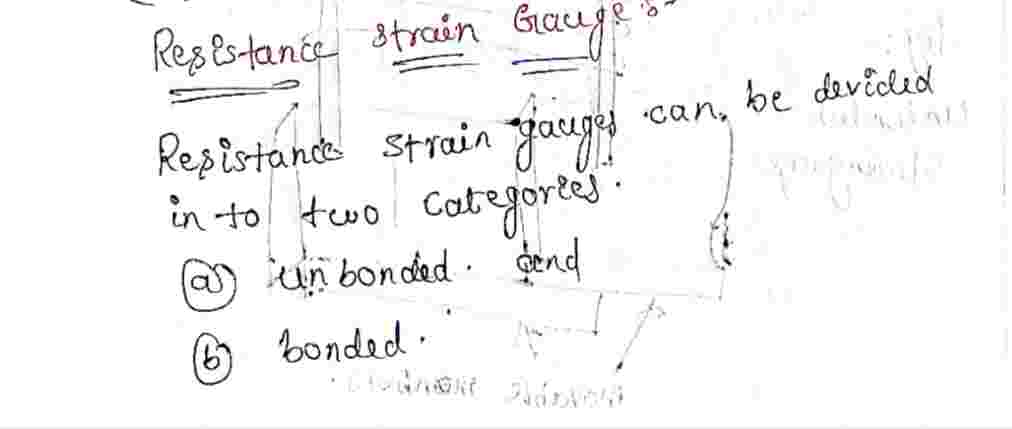 Resistance strain Gauge:-
Resistance strain gauges can be devided
in to two categories.
(a) unbonded. and
(b) bonded.